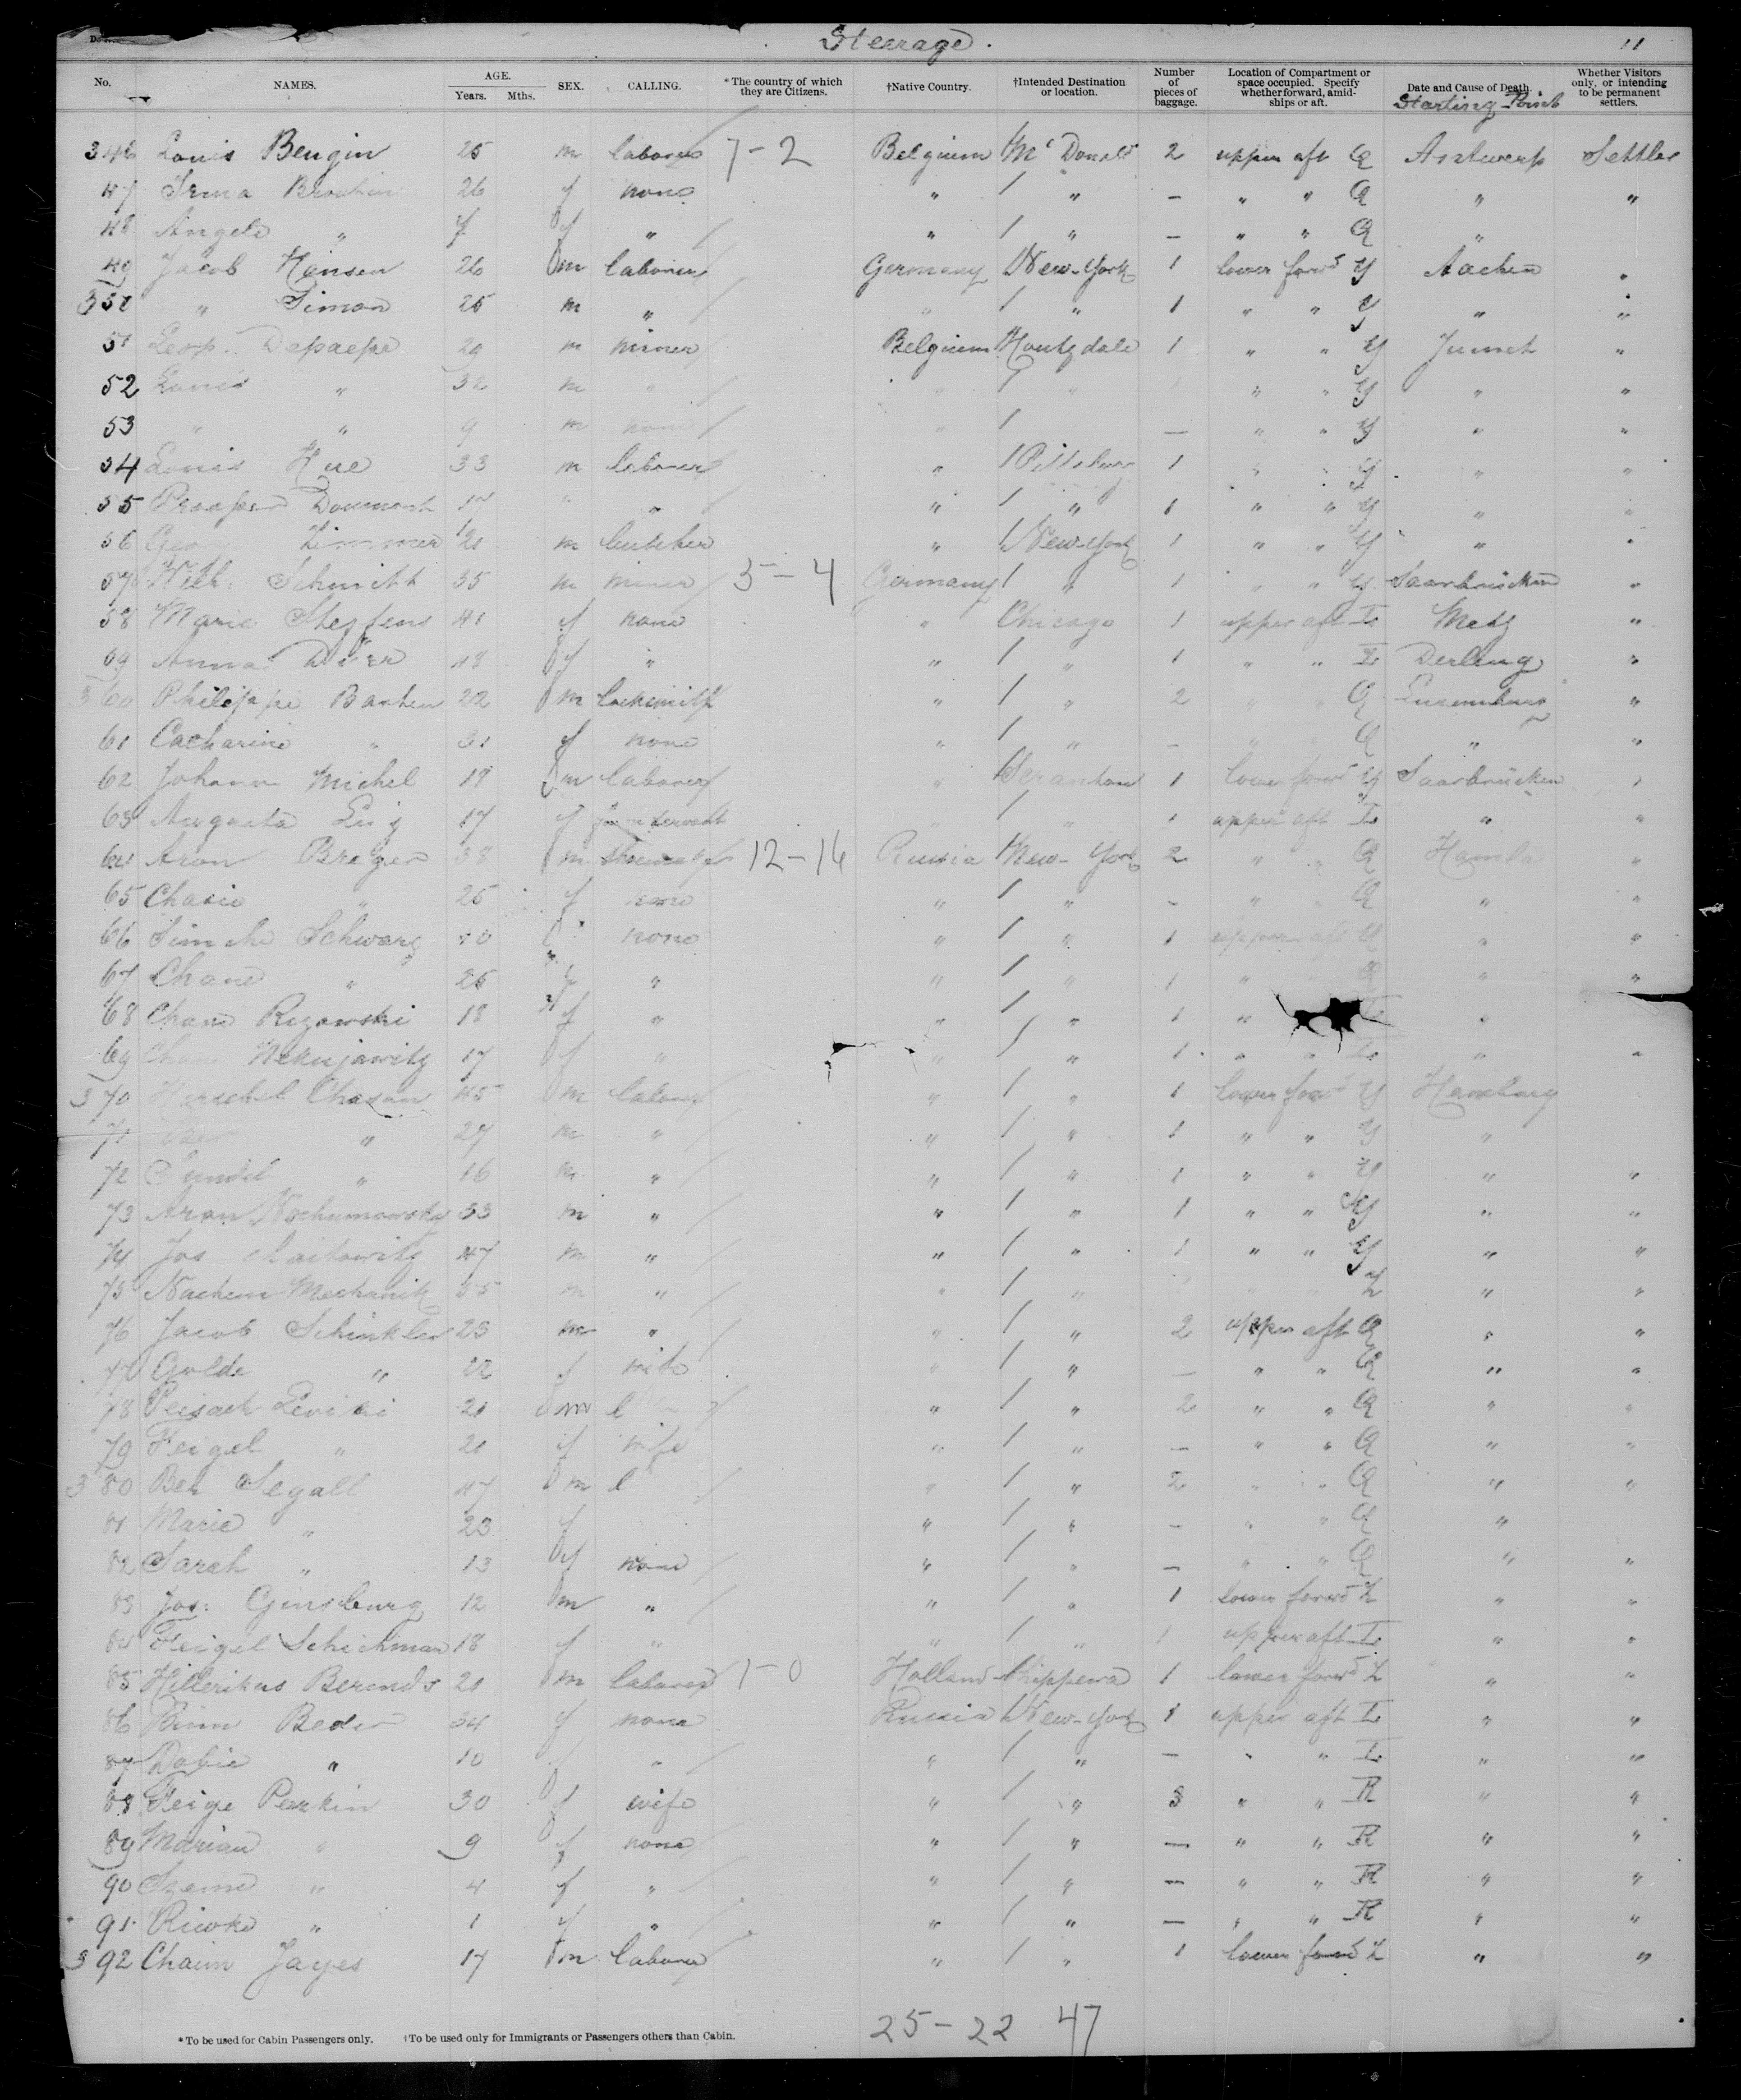 Steerage. 11
No. NAMES. AGE. Years. Mths. SEX. CALLING. *The country of which they are Citizens. †Native Country. †Intended Destination or location. Number of pieces of baggage. Location of Compartment or space occupied. Specify whether forward, amidships or aft. Date and Cause of Death. Whether Visitors only, or intending to be permanent settlers.
Starting Point
346 Louis Bengin 25 m laborer 7-2 Belgium McDonald 2 upper aft Q Antwerp Settler
47 Irma 26 f none " / " - " " Q " "
48 Angele " f " " / " - " " Q "
49 Jacob Hansen 26 m laborer Germany New-York 1 lower forwd Y Aachen "
350 " Simon 25 m " " / " 1 " " Y " "
51 Leop. Depaepe 29 m miner Belgium Houtzdale 1 " " Y Jumet "
52 Louis " 32 m " " / " " " Y " "
53 " " 9 m none " / - " " Y " "
54 Louis Hue 33 m laborer " Pittsburg 1 " " Y " "
55 Prosper Doumont 17 " " " / " 1 " " Y " "
56 Zimmer 21 m butcher " New-York 1 " " Y " "
57 Schmitt 35 m miner 5-4 Germany / " 1 " " Y Saarbrücken "
58 Marie Steffens 41 f none " Chicago 1 upper aft I Metz "
59 Anna 48 f " " / " 1 " " I Derling "
360 Philippe Basten 22 m locksmith " / " 2 " " Q Luxemburg "
61 Catharine " 31 f none " / " - " " Q " "
62 Johann Michel 19 m laborer " Scranton 1 lower forwd Y Saarbrücken "
63 Augusta 17 f servant " / " 1 upper aft I " "
64 Aron Breger 38 m shoemaker 12-14 Russia New-York 2 " " Q "
65 Chasie " 25 f none " / " - " " Q " "
66 Simche Schwarz none " / " 1 upper aft " "
67 Chane " 25 " " / " 1 " " "
68 Chane Rizowski 18 f " " / " 1 " "
69 17 f " " / " 1 " " I " "
370 Herschel Chasan 45 m laborer " / " 1 lower forwd Y Hamburg
71 " 27 m " " / " 1 " " Y "
72 " 16 m " " / " 1 " " Y " "
73 Aron Nochumowsky 33 m " " / " 1 " " Y " "
74 Jos 47 m " " / " 1 " " Y " "
75 Nachum Mechanik 35 m " " / " " " Z " "
76 Jacob Schinkler 23 m " " / " 2 upper aft Q " "
77 Golde " 22 f wife " / " - " " Q " "
78 Peisach 21 m " / " 2 " " Q " "
79 Feigel " 21 f wife " / " - " " Q " "
380 Ber Segall 47 m " / " 2 " " Q " "
81 Marie " 23 f " / " - " " Q "
82 Sarah " 13 f none " / " - " " Q " "
83 Jos: Ginsburg 12 m " " / " 1 lower forwd Z " "
84 Feigel Schichman 18 f " " / " 1 upper aft I " "
85 Hillerikus Berends 21 m laborer 1-0 Holland Chippewa 1 lower forwd Z " "
86 Beder 34 f none Russia New-York 1 upper aft I " "
87 Dobie " 10 f " " / " - " " I " "
88 Feige Perkin 30 f wife " / " 3 " " R " "
89 Marian " 9 f none " / " - " " R " "
90 " 4 f " " / " - " " R " "
91 Riwke " 1 f " " / " - " " R " "
392 Chaim Jayes 17 m laborer " / " 1 lower forwd Z " "
25-22 47
*To be used for Cabin Passengers only. †To be used only for Immigrants or Passengers others than Cabin.